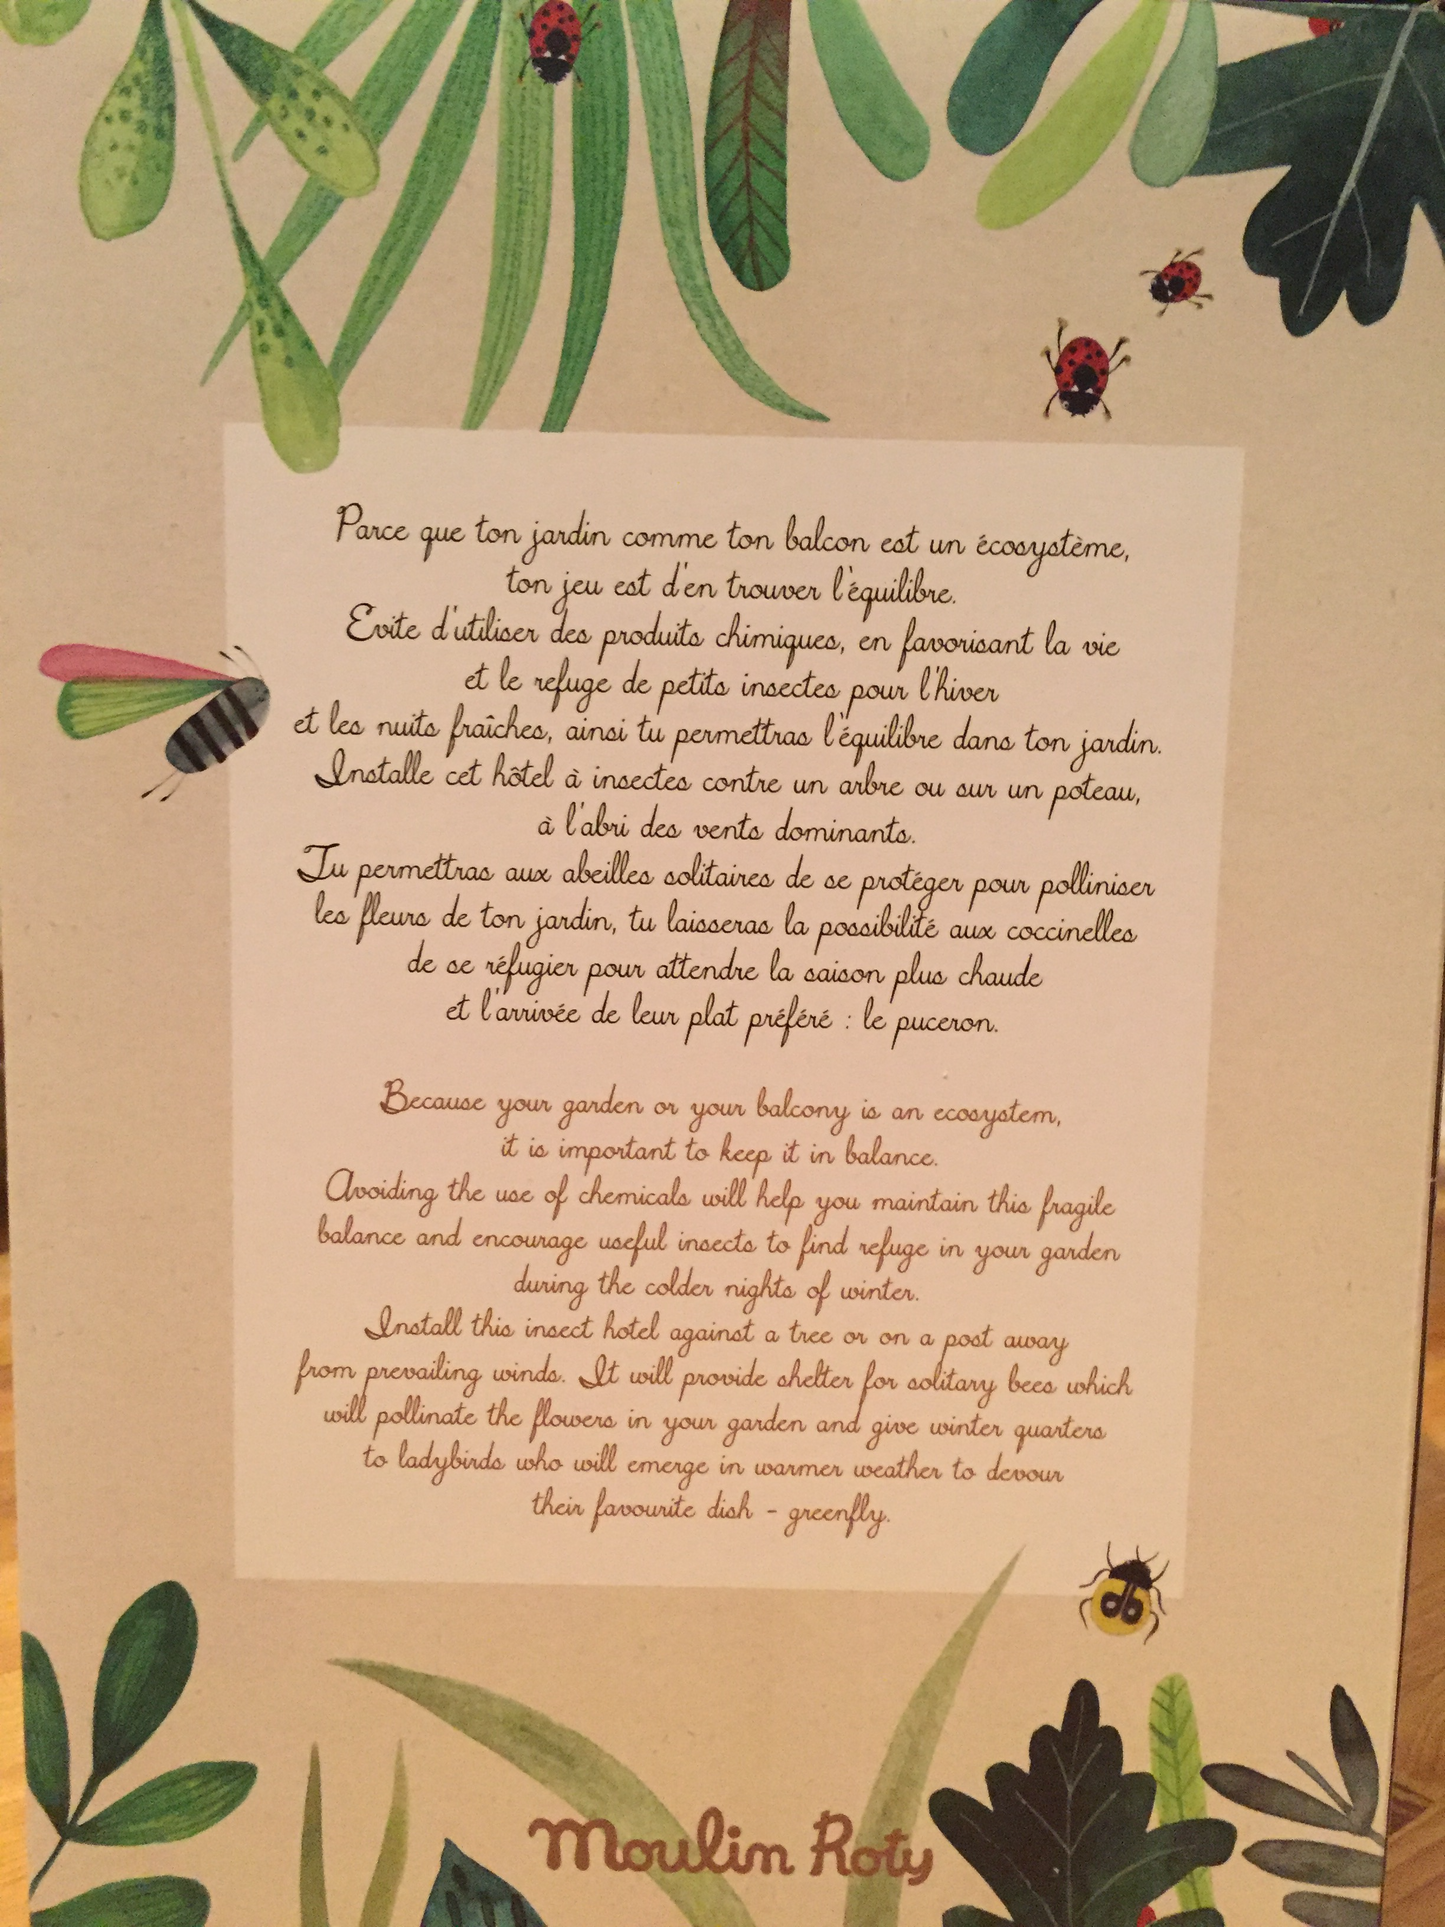 Parce que ton jardin comme ton balcon est un écosystème,
ton jeu est d'en trouver l'équilibre.
Evite d'utiliser des produits chimiques, en favorisant la vie
et le refuge de petits insectes pour l'hiver
et les nuits fraîches, ainsi tu permettras l'équilibre dans ton jardin.
Installe cet hôtel à insectes contre un arbre ou sur un poteau,
à l'abri des vents dominants.
Tu permettras aux abeilles solitaires de se protéger pour polliniser
les fleurs de ton jardin, tu laisseras la possibilité aux coccinelles
de se réfugier pour attendre la saison plus chaude
et l'arrivée de leur plat préféré : le puceron.
Because your garden or your balcony is an ecosystem,
it is important to keep it in balance.
Avoiding the use of chemicals will help you maintain this fragile
balance and encourage useful insects to find refuge in your garden
during the colder nights of winter.
Install this insect hotel against a tree or on a post away
from prevailing winds. It will provide shelter for solitary bees which
will pollinate the flowers in your garden and give winter quarters
to ladybirds who will emerge in warmer weather to devour
their favourite dish - greenfly.
Moulin Roty